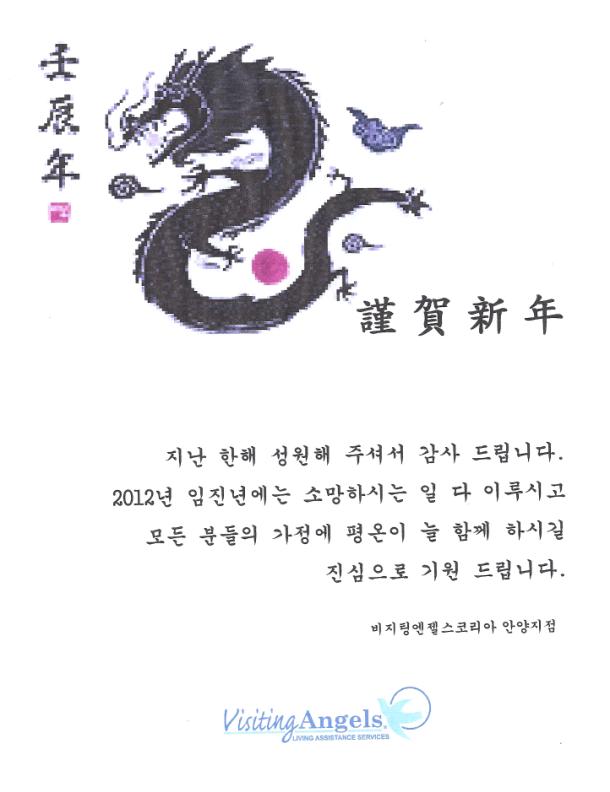 壬辰年
謹賀新年
지난 한해 성원해 주셔서 감사 드립니다.
2012년 임진년에는 소망하시는 일 다 이루시고
모든 분들의 가정에 평온이 늘 함께 하시길
진심으로 기원 드립니다.
비지팅엔젤스코리아 안양지점
Visiting Angels®
LIVING ASSISTANCE SERVICES